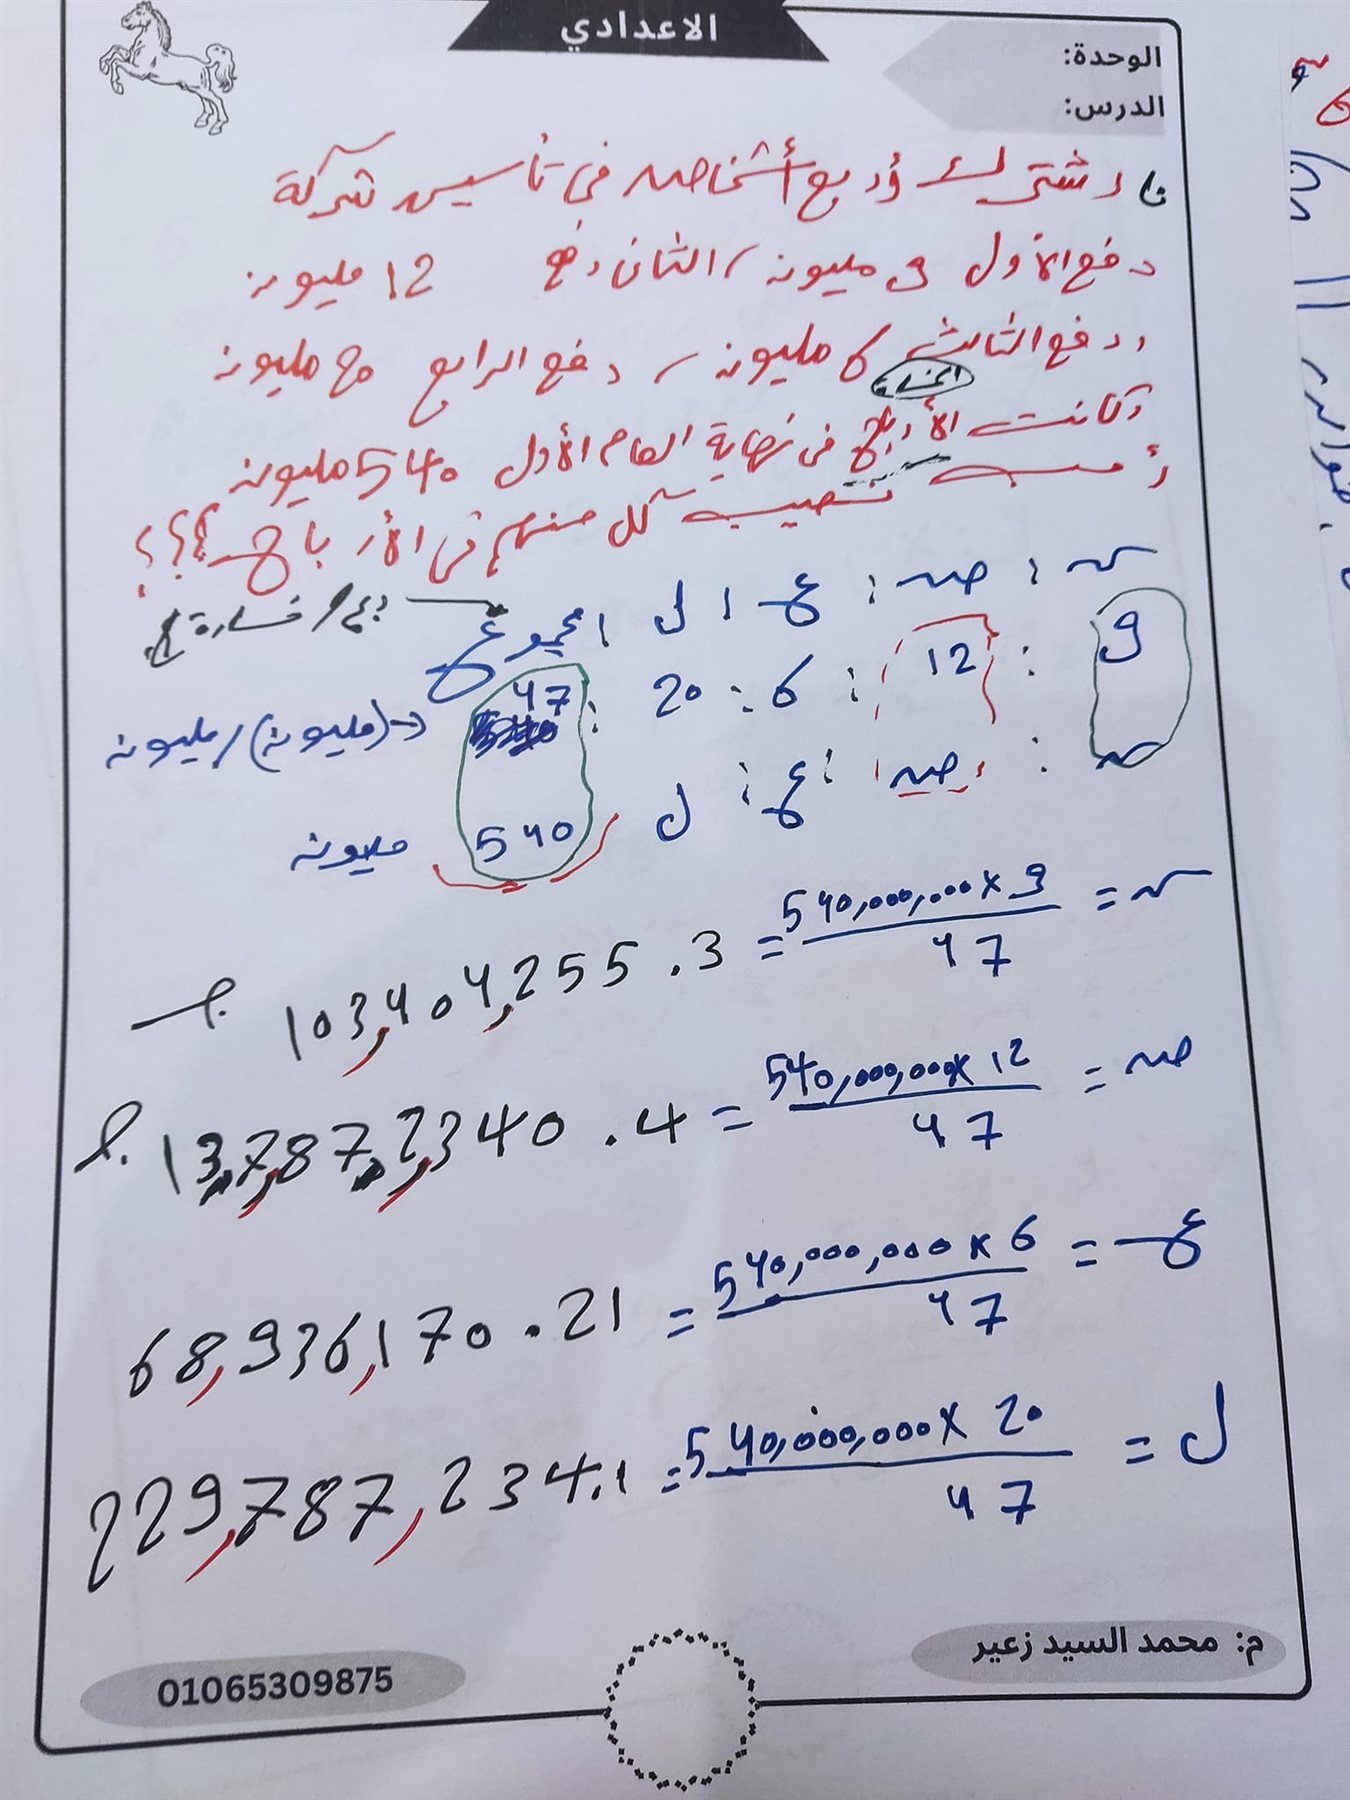 الاعدادي
الوحدة:
الدرس:
اشترك أربع أشخاص في تأسيس شركة
دفع الأول 9 مليون / الثانى دفع 12 مليون
ودفع الثالث 6 مليون / دفع الرابع 20 مليون
الخسارة
وكانت الأرباح فى نهاية العام الأول 540 مليون
أحسب نصيب كل منهم فى الأرباح ؟؟؟
س : ص : ع : ل : المجموع
ربح / خسارة
9 : 12 : 6 : 20 : 47 (مليون) / مليون
س : ص : ع : ل 540 مليون
س = 540,000,000 x 9 / 47 = 103,404,255.3
ص = 540,000,000 x 12 / 47 = 13,7,87,2,340.4
ع = 540,000,000 x 6 / 47 = 68,936,170.21
ل = 540,000,000 x 20 / 47 = 229,787,234.1
م: محمد السيد زعير
01065309875